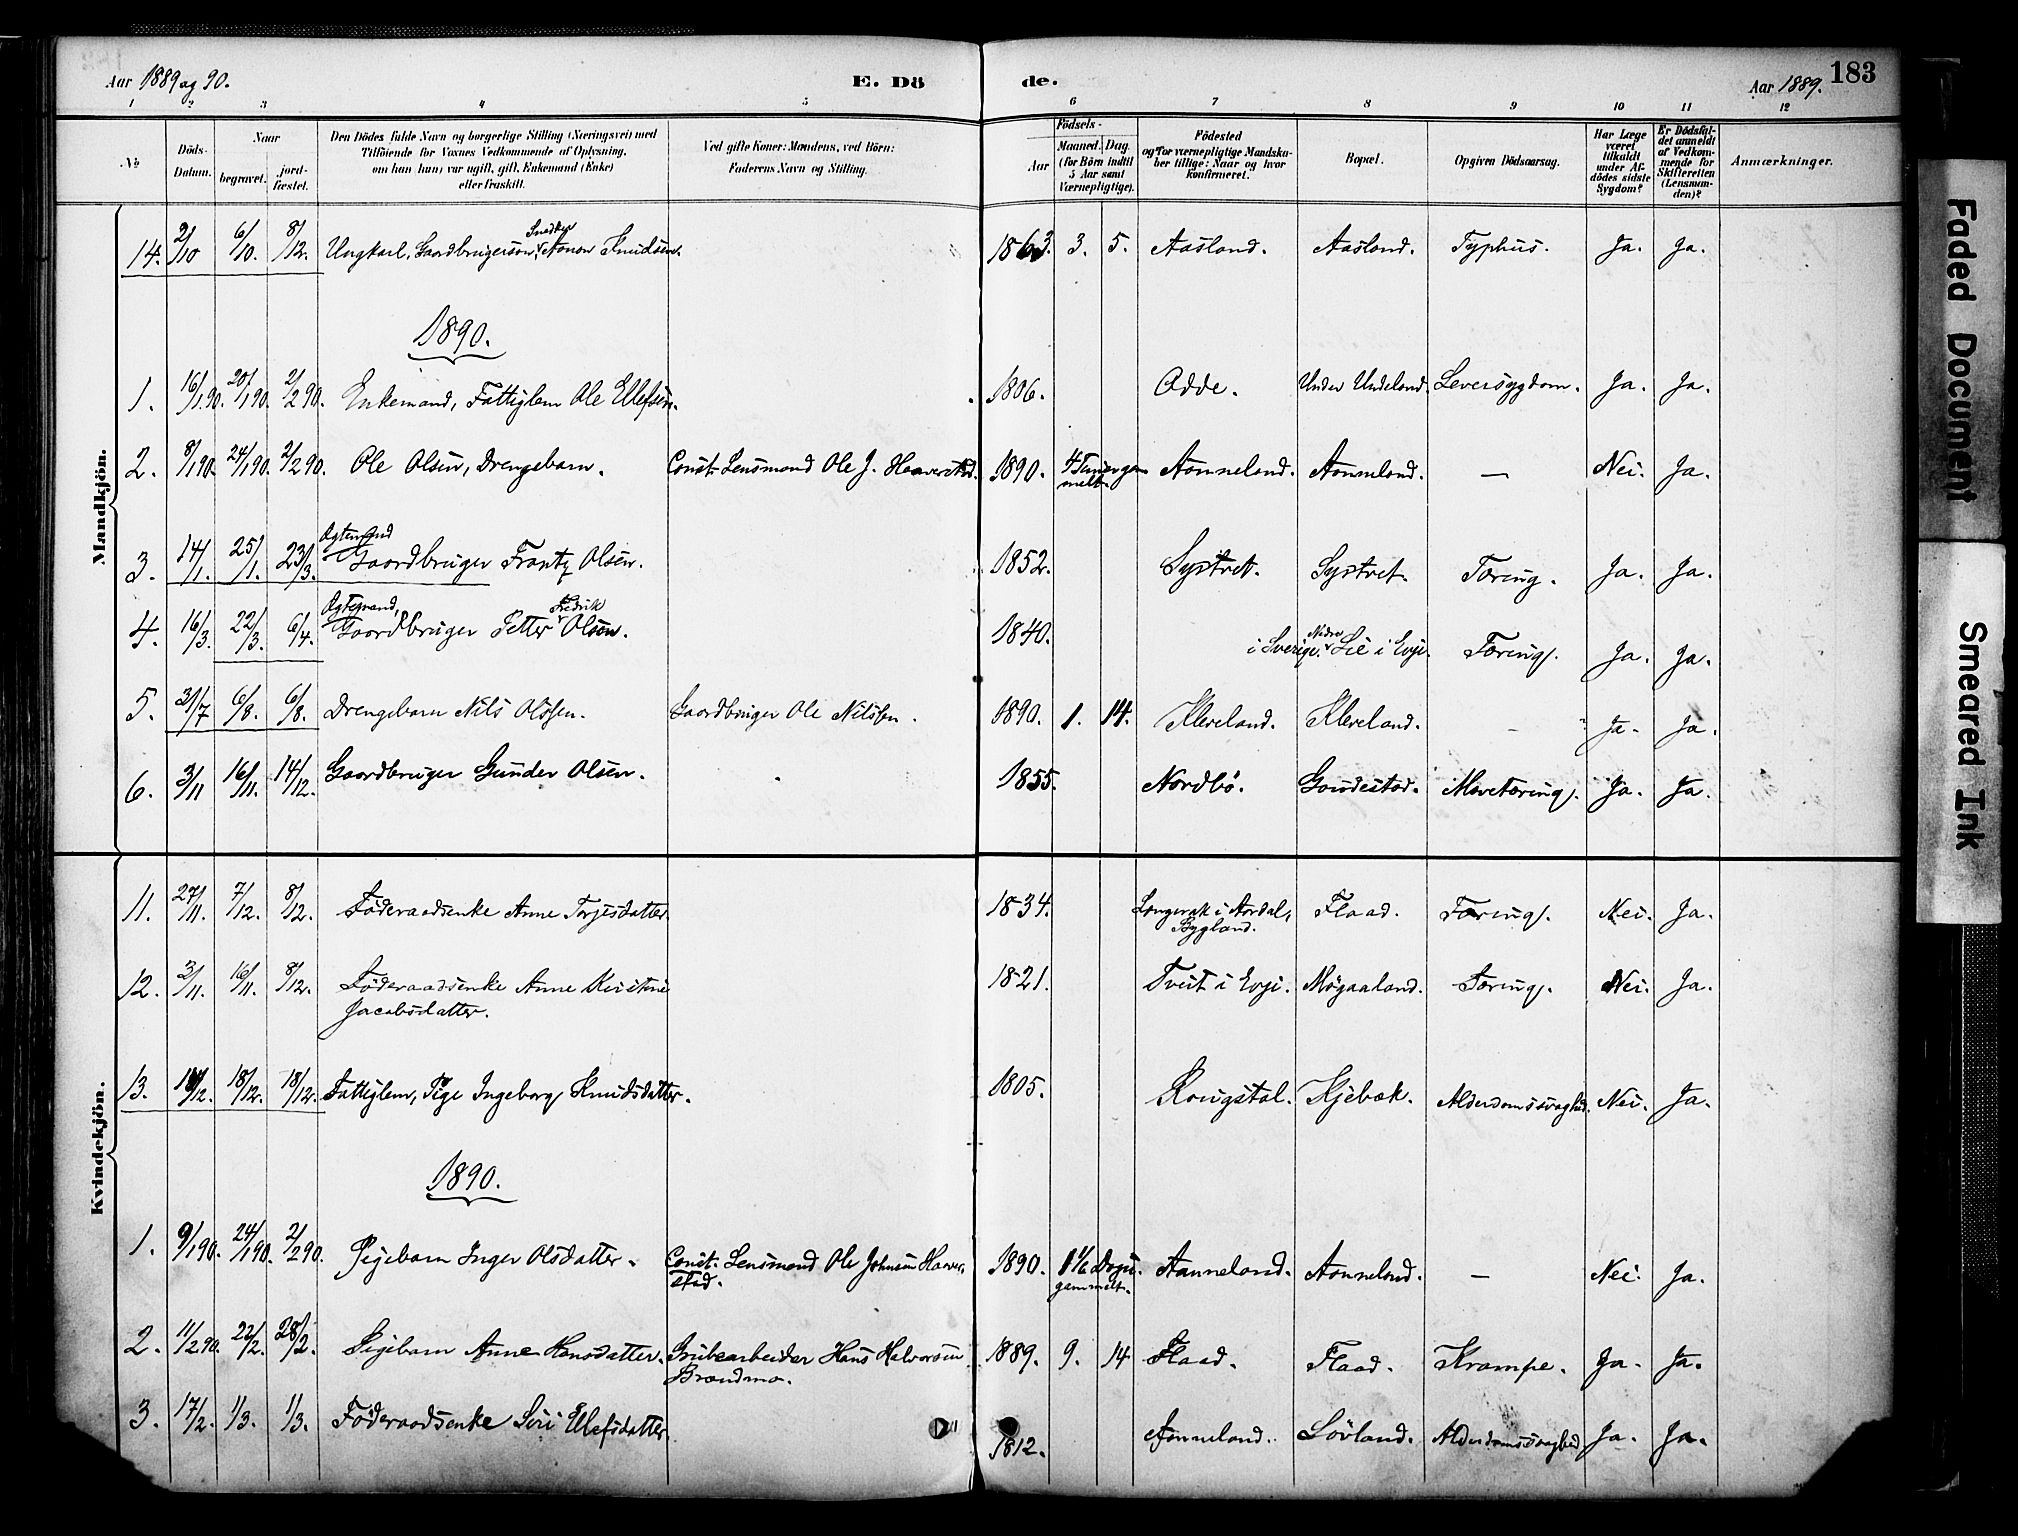 Aar 1889 og 90. E. Dö de. Aar 1889. 183
1 2 3 4 5 6 7 8 9 10 11 12
No Döds-Datum. Naar begravet. jordfæstet. Den Dödes fulde Navn og borgerlige Stilling (Næringsvei) med Tilföiende for Voxnes Vedkommende af Oplysning, om han (hun) var ugift, gift, Enkemand (Enke) eller fraskilt. Ved gifte Koner: Mandens, ved Börn: Faderens Navn og Stilling. Födsels- Aar Maaned. Dag. (for Börn indtil 5 Aar samt Værnepligtige). Födested og for værnepligtige Mandskaber tillige: Naar og hvor konfirmeret. Bopæl. Opgiven Dödsaarsag. Har Læge været tilkaldt under Afdödes sidste Sygdom? Er Dödsfaldet anmeldt af Vedkommende for Skifteretten (Lensmanden)? Anmærkninger.
Mandkjön.
14. 2/10 6/10 8/12. Ungkarl, Gaardbrugersøn, Snedker Aanon Knudsen. 1863. 3. 5. Aasland. Aasland. Typhus. Ja. Ja.
1890.
1. 16/1 90. 20/1 90. 2/2 90. Enkemand, Fattiglem Ole Ellefsen. 1806. Odde. Under Uldeland. Leversygdom. Ja. Ja.
2. 8/1 90. 24/1 90. 2/2 90. Ole Olsen, Drengebarn. Const. Lensmand Ole J. Haaverstad. 1890. 4 Timer gammelt. Aanneland. Aanneland. — Nei. Ja.
3. 14/1. 25/1. 23/3. Ægtemand Gaardbruger Frantz Olsen. 1852. Systret. Systret. Tæring. Ja. Ja.
4. 16/3. 22/3. 6/4. Ægtemand, Gaardbruger Petter Fredrik Olsen. 1840. i Sverige. Nedre Lie i Evje. Tæring. Ja. Ja.
5. 31/7 6/8. 6/8. Drengebarn Nils Olsen. Gaardbruger Ole Nilsen. 1890. 1. 14. Kleveland. Kleveland. - Ja. Ja.
6. 3/11 16/11. 14/12. Gaardbruger Gunder Olsen. 1855. Nordbö. Gaudestad. Mavetæring. Ja. Ja.
Kvindekjön.
11. 27/11. 7/12. 8/12. Föderaadsenke Anne Torjesdatter 1834. Longerak i Aardal, Bygland. Flaad. Tæring. Nei. Ja.
12. 3/11. 16/11. 8/12. Föderaadsenke Anne Kirstine
Jacobsdatter. 1821. Tveit i Evje. Møgaaland. Tæring. Nei. Ja.
13. 18/12. 18/12. Fattiglem, Pige Ingeborg Knudsdatter. 1805. Kjebæk. Alderdomssvaghed. Nei. Ja.
1890.
1. 9/1 90. 24/1 90. 2/2 90. Pigebarn Inger Olsdatter. Const. Lensmand Ole Johnsen Haaverstad. 1890. 1 1/2 Dage gammelt. Aanneland. Aanneland. — Nei. Ja.
2. 11/2 90. 22/2. 28/2. Pigebarn Anne Hansdatter. Grubearbeider Hans Halvorsen Brandmo. 1889. 9. 14 Flaad. Flaad. Krampe. Ja. Ja.
3. 17/2. 1/3. 1/3. Föderaadsenke Siri Ellefsdatter. 1812. Aanneland. Lövland. Alderdomssvaghed Ja. Ja.
Faded Document
Smeared Ink